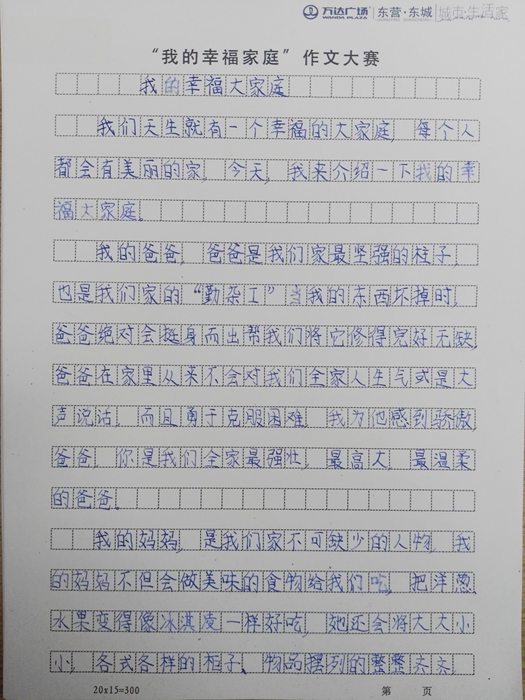 万达广场 WANDA PLAZA 东营·东城 城市·生活家
“我的幸福家庭”作文大赛
我的幸福大家庭
我们天生就有一个幸福的大家庭，每个人
都会有美丽的家，今天，我来介绍一下我的幸
福大家庭。
我的爸爸，爸爸是我们家最坚强的柱子，
也是我们家的“勤杂工”当我的东西坏掉时，
爸爸绝对会挺身而出帮我们将它修得完好无缺，
爸爸在家里从来不会对我们全家人生气或是大
声说话，而且勇于克服困难，我为他感到骄傲，
爸爸，你是我们全家最强壮，最高大，最温柔
的爸爸。
我的妈妈，是我们家不可缺少的人物，我
的妈妈不但会做美味的食物给我们吃，把洋葱，
水果变得像冰淇凌一样好吃，她还会将大大小
小，各式各样的柜子、物品摆列的整整齐齐，
20x15=300 第 页